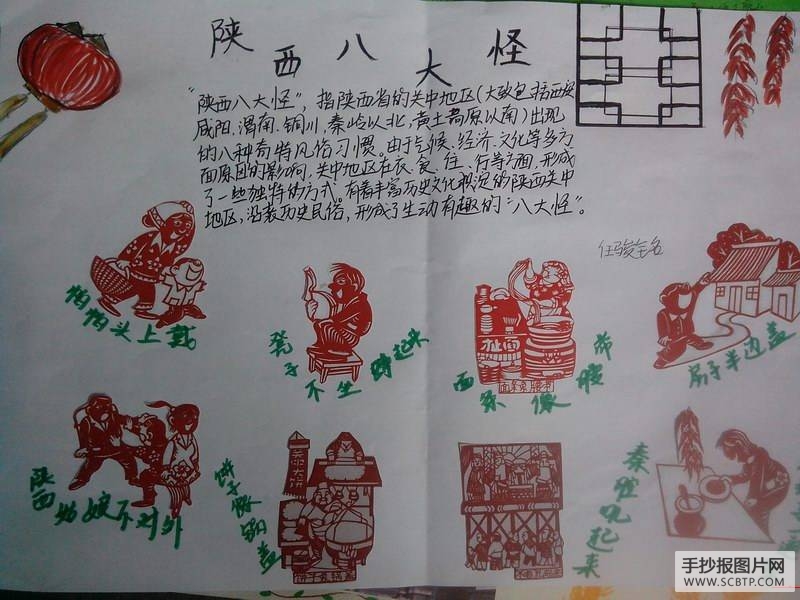 陕西八大怪
"陕西八大怪"，指陕西省的关中地区(大致包括西安
咸阳、渭南、铜川，秦岭以北，黄土高原以南)出现
的八种奇特风俗习惯。由于气候、经济、文化等多方
面原因的影响，关中地区在衣、食、住、行等方面，形成
了一些独特的方式。有着丰富历史文化积淀的陕西关中
地区，沿袭历史民俗，形成了生动有趣的"八大怪"。
帕帕头上戴
凳子不坐蹲起来
面条像裤带
房子半边盖
陕西姑娘不对外
饼子像锅盖
秦腔吼起来
手抄报图片网
WWW.SCBTP.COM